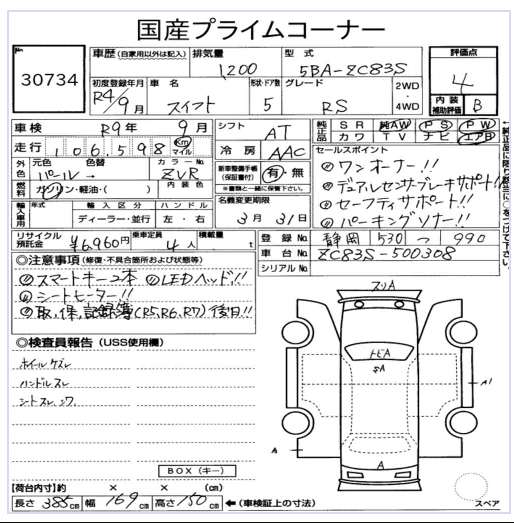 国産プライムコーナー
No. 30734
車歴(自家用以外は記入) 排気量 1200 型式 5BA-ZC83S 評価点 4
初度登録年月 R4/9月 車名 スイフト 形状・ドア数 5 グレード RS 2WD・4WD 内装補助評価 B
車検 R9年 9月 シフト AT 純正品 SR 純AW PS PW
カワ TV ナビ エアB
走行 106,598 Km マイル 冷房 AAC
外色 元色 パール 色替 → カラーNo. ZVR 新車整備手帳(保証書付) 有・無
※書類と一緒に保管下さい。
燃料 ガソリン・軽油・( ) 内装色
輸入車用 年式 輸入区分 ディーラー・並行 ハンドル 左・右 名義変更期限 3月31日
セールスポイント
◎ワンオーナー!!
◎デュアルセンサーブレーキサポート!!
◎セーフティサポート!!
◎パーキングソナー!!
←純正品に限り該当に○をつけて下さい。
リサイクル預託金 ¥6,960円 乗車定員 4人 積載量 t
登録No. 静岡 530 つ 990
車台No. ZC83S-500308
シリアルNo.
◎注意事項(修復・不具合箇所および状態等)
◎スマートキー2本 ◎LEDヘッド!!
◎シートヒーター!!
◎取,保,記録簿(R5,R6,R7)後日!!
◎検査員報告(USS使用欄)
ホイールケズレ
ハンドルスレ
シートスレ、シワ
BOX(キー)
スリA
トビA
SA
A1
A
A
スペア
【荷台内寸】約 × × (cm)
長さ 385cm 幅 169cm 高さ 150cm ←(車検証上の寸法)